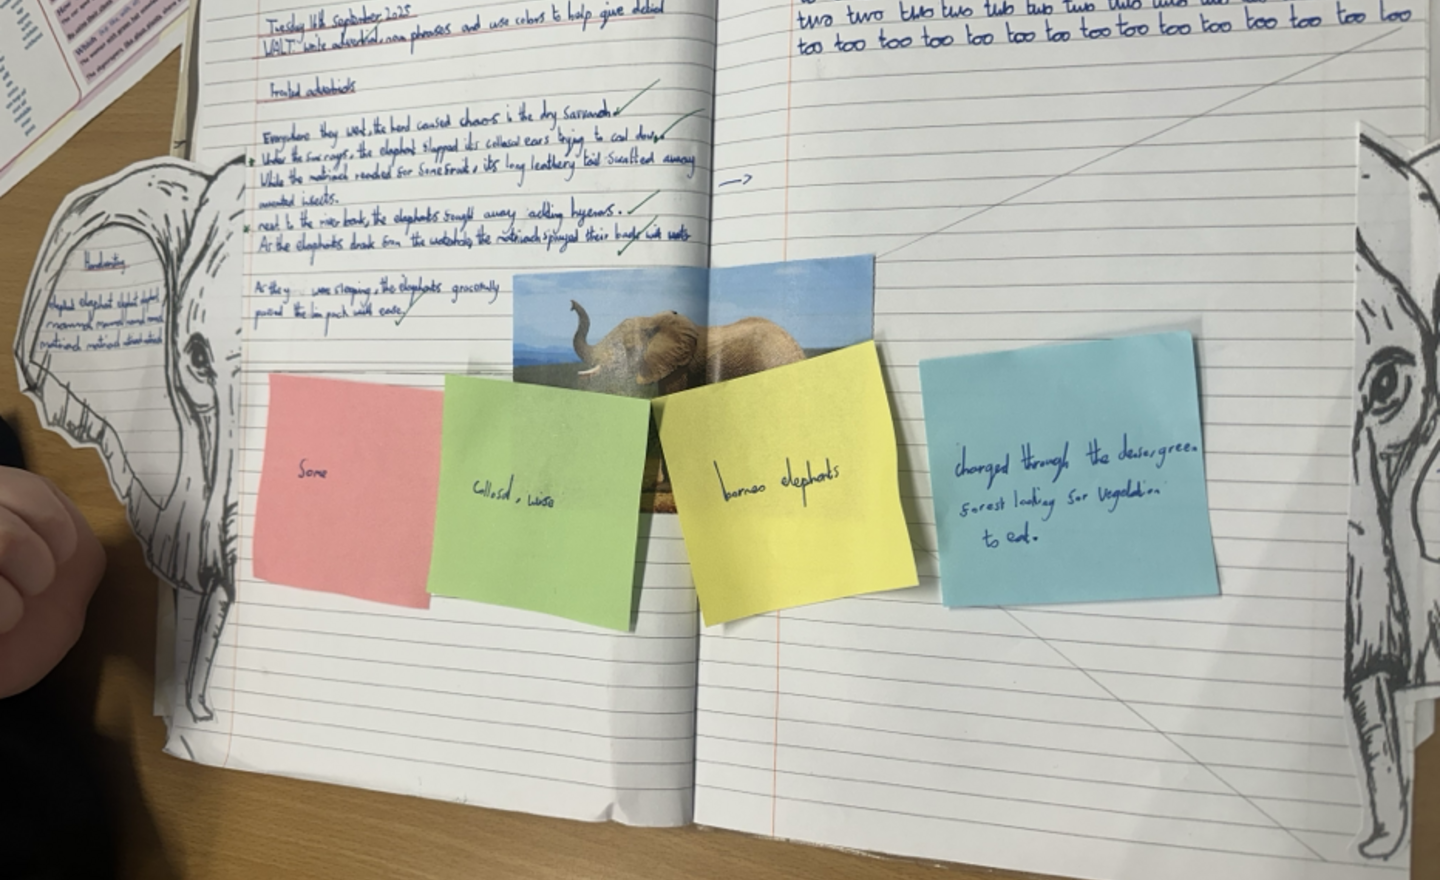 Tuesday 16th September 2025
WALT: write adverbial, noun phrases and use colors to help give detail
Fronted adverbials
Everywhere they went, the herd caused chaos in the dry Savannah.
Under the sun rays, the elephant flapped its collosal ears trying to cool down.
While the matriach reached for some fruit, its long leathery tail swatted away
insects.
next to the river bank, the elephants fought away hyenas.
As the elephants drank from the waterhole, the matriach sprayed their backs with water
As they were sleeping, the elephants gracefully
passed the lion pack with ease.
Handwriting
elephant elephant elephant elephant
matriach matriach
two two two two two two two two two two
too too too too too too too too too too too too too too too
Some
Collosal, wise
borneo elephants
charged through the dense, green
forest looking for vegetation
to eat.